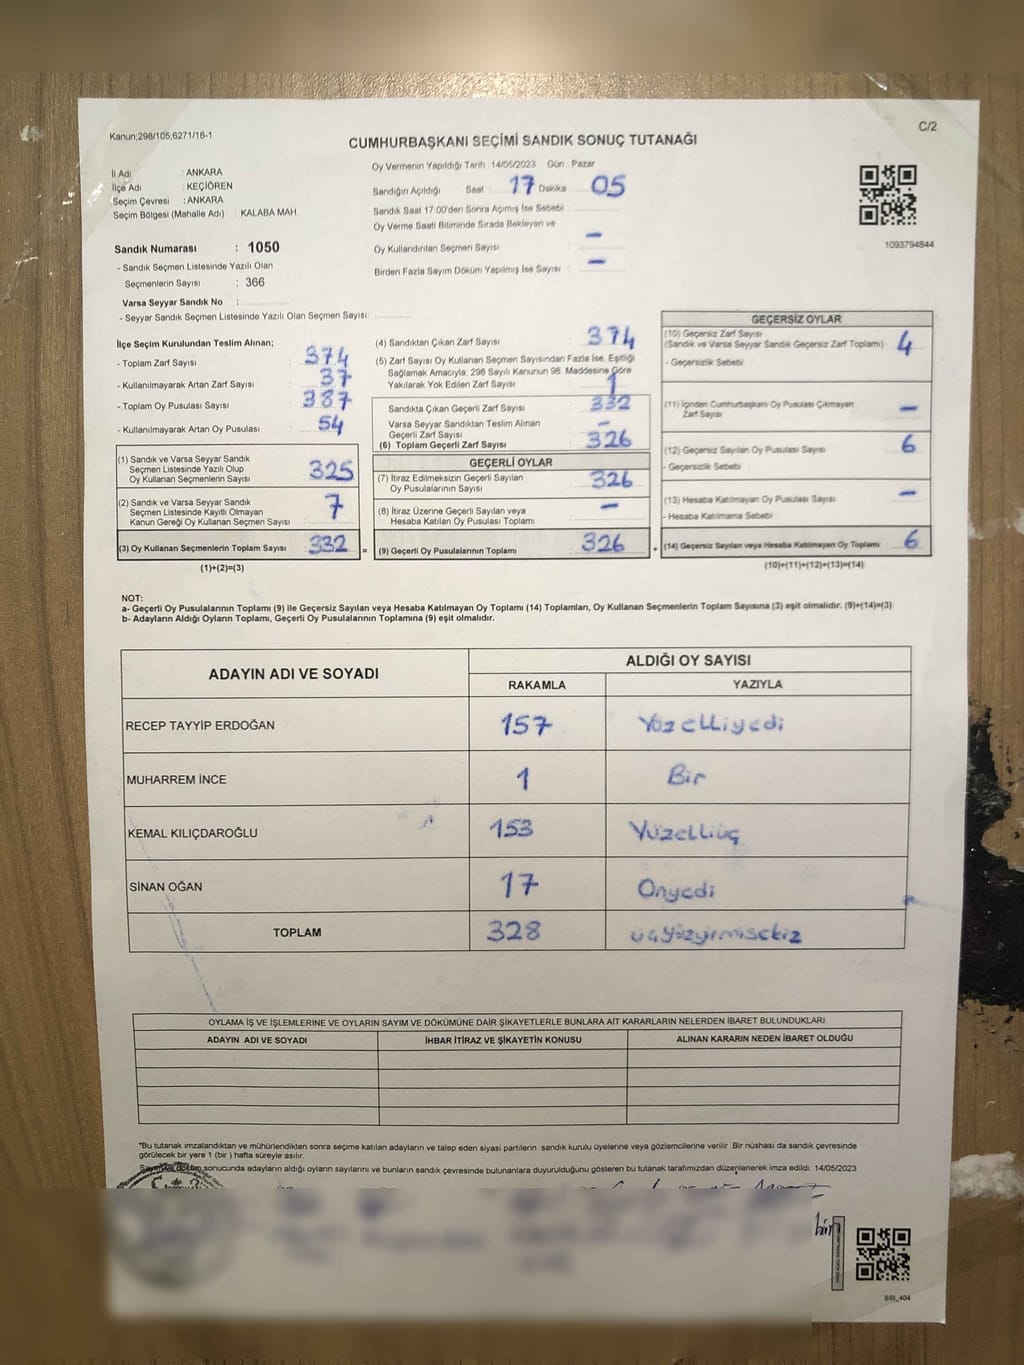 Kanun:298/105,6271/18-1
C/2
CUMHURBAŞKANI SEÇİMİ SANDIK SONUÇ TUTANAĞI
İl Adı : ANKARA
İlçe Adı : KEÇİÖREN
Seçim Çevresi : ANKARA
Seçim Bölgesi (Mahalle Adı) : KALABA MAH.
Sandık Numarası : 1050
- Sandık Seçmen Listesinde Yazılı Olan
Seçmenlerin Sayısı : 366
Varsa Seyyar Sandık No :
- Seyyar Sandık Seçmen Listesinde Yazılı Olan Seçmen Sayısı:
Oy Vermenin Yapıldığı Tarih : 14/05/2023 Gün : Pazar
Sandığın Açıldığı Saat : 17 Dakika : 05
Sandık Saat 17.00'den Sonra Açılmış İse Sebebi :
Oy Verme Saati Bitiminde Sırada Bekleyen ve
Oy Kullandırılan Seçmen Sayısı : -
Birden Fazla Sayım Döküm Yapılmış İse Sayısı : -
1093794844
İlçe Seçim Kurulundan Teslim Alınan;
- Toplam Zarf Sayısı : 374
- Kullanılmayarak Artan Zarf Sayısı : 37
- Toplam Oy Pusulası Sayısı : 387
- Kullanılmayarak Artan Oy Pusulası : 54
(1) Sandık ve Varsa Seyyar Sandık
Seçmen Listesinde Yazılı Olup
Oy Kullanan Seçmenlerin Sayısı : 325
(2) Sandık ve Varsa Seyyar Sandık
Seçmen Listesinde Kayıtlı Olmayan
Kanun Gereği Oy Kullanan Seçmen Sayısı : 7
(3) Oy Kullanan Seçmenlerin Toplam Sayısı : 332 =
(1)+(2)=(3)
(4) Sandıktan Çıkan Zarf Sayısı : 374
(5) Zarf Sayısı Oy Kullanan Seçmen Sayısından Fazla İse, Eşitliği
Sağlamak Amacıyla, 298 Sayılı Kanunun 98. Maddesine Göre
Yakılarak Yok Edilen Zarf Sayısı : 1
Sandıkta Çıkan Geçerli Zarf Sayısı : 332
Varsa Seyyar Sandıktan Teslim Alınan
Geçerli Zarf Sayısı : -
(6) Toplam Geçerli Zarf Sayısı : 326
GEÇERLİ OYLAR
(7) İtiraz Edilmeksizin Geçerli Sayılan
Oy Pusulalarının Sayısı : 326
(8) İtiraz Üzerine Geçerli Sayılan veya
Hesaba Katılan Oy Pusulası Toplamı : -
(9) Geçerli Oy Pusulalarının Toplamı : 326 +
GEÇERSİZ OYLAR
(10) Geçersiz Zarf Sayısı
(Sandık ve Varsa Seyyar Sandık Geçersiz Zarf Toplamı) : 4
- Geçersizlik Sebebi :
(11) İçinden Cumhurbaşkanı Oy Pusulası Çıkmayan
Zarf Sayısı : -
(12) Geçersiz Sayılan Oy Pusulası Sayısı : 6
- Geçersizlik Sebebi :
(13) Hesaba Katılmayan Oy Pusulası Sayısı : -
- Hesaba Katılmama Sebebi :
(14) Geçersiz Sayılan veya Hesaba Katılmayan Oy Toplamı : 6
(10)+(11)+(12)+(13)=(14)
NOT:
a- Geçerli Oy Pusulalarının Toplamı (9) ile Geçersiz Sayılan veya Hesaba Katılmayan Oy Toplamı (14) Toplamları, Oy Kullanan Seçmenlerin Toplam Sayısına (3) eşit olmalıdır. (9)+(14)=(3)
b- Adayların Aldığı Oyların Toplamı, Geçerli Oy Pusulalarının Toplamına (9) eşit olmalıdır.
ADAYIN ADI VE SOYADI ALDIĞI OY SAYISI
RAKAMLA YAZIYLA
RECEP TAYYİP ERDOĞAN 157 Yüzelliyedi
MUHARREM İNCE 1 Bir
KEMAL KILIÇDAROĞLU 153 Yüzelliüç
SİNAN OĞAN 17 Onyedi
TOPLAM 328 üçyüzyirmisekiz
OYLAMA İŞ VE İŞLEMLERİNE VE OYLARIN SAYIM VE DÖKÜMÜNE DAİR ŞİKAYETLERLE BUNLARA AİT KARARLARIN NELERDEN İBARET BULUNDUKLARI
ADAYIN ADI VE SOYADI İHBAR İTİRAZ VE ŞİKAYETİN KONUSU ALINAN KARARIN NEDEN İBARET OLDUĞU
*Bu tutanak imzalandıktan ve mühürlendikten sonra seçime katılan adayların ve talep eden siyasi partilerin sandık kurulu üyelerine veya gözlemcilerine verilir. Bir nüshası da sandık çevresinde
görülecek bir yere 1 (bir) hafta süreyle asılır.
Sayım ve döküm sonucunda adayların aldığı oyların sayılarını ve bunların sandık çevresinde bulunanlara duyurulduğunu gösteren bu tutanak tarafımızdan düzenlenerek imza edildi. 14/05/2023